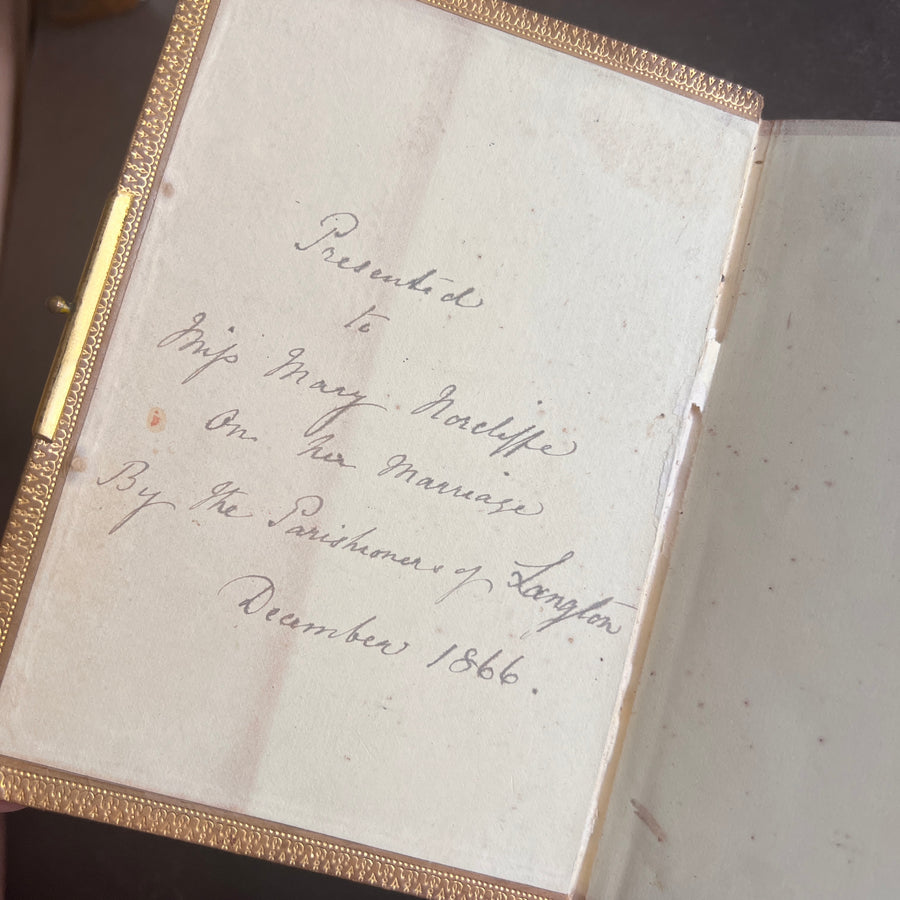 Presented
to
Miss Mary Norcliffe
On her Marriage
By the Parishioners of Langton
December 1866.